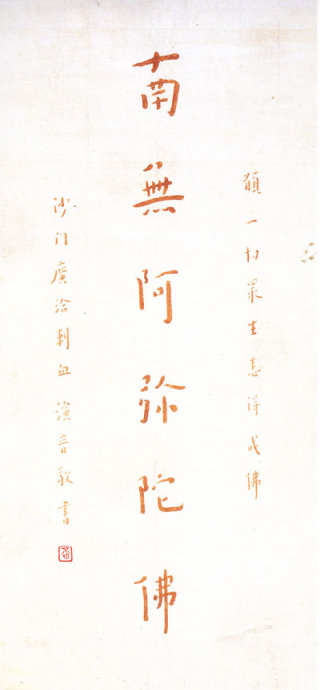 願一切眾生悉得成佛
南無阿弥陀佛
沙門廣洽刺血演音敬書
音